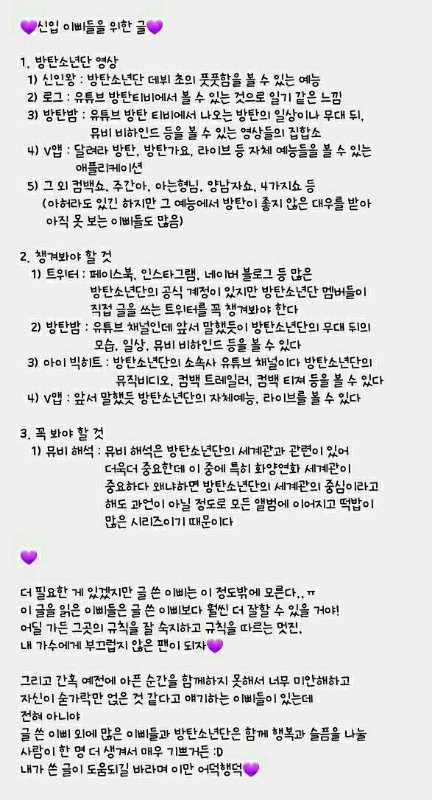 💜신입 이삐들을 위한 글💜
1. 방탄소년단 영상
1) 신인왕 : 방탄소년단 데뷔 초의 풋풋함을 볼 수 있는 예능
2) 로그 : 유튜브 방탄티비에서 볼 수 있는 것으로 일기 같은 느낌
3) 방탄밤 : 유튜브 방탄 티비에서 나오는 방탄의 일상이나 무대 뒤,
뮤비 비하인드 등을 볼 수 있는 영상들의 집합소
4) V앱 : 달려라 방탄, 방탄가요, 라이브 등 자체 예능들을 볼 수 있는
애플리케이션
5) 그 외 컴백쇼, 주간아, 아는형님, 양남자쇼, 4가지쇼 등
(아허라도 있긴 하지만 그 예능에서 방탄이 좋지 않은 대우를 받아
아직 못 보는 이삐들도 많음)
2. 챙겨봐야 할 것
1) 트위터 : 페이스북, 인스타그램, 네이버 블로그 등 많은
방탄소년단의 공식 계정이 있지만 방탄소년단 멤버들이
직접 글을 쓰는 트위터를 꼭 챙겨봐야 한다
2) 방탄밤 : 유튜브 채널인데 앞서 말했듯이 방탄소년단의 무대 뒤의
모습, 일상, 뮤비 비하인드 등을 볼 수 있다
3) 아이 빅히트 : 방탄소년단의 소속사 유튜브 채널이다 방탄소년단의
뮤직비디오, 컴백 트레일러, 컴백 티져 등을 볼 수 있다
4) V앱 : 앞서 말했듯 방탄소년단의 자체예능, 라이브를 볼 수 있다
3. 꼭 봐야 할 것
1) 뮤비 해석 : 뮤비 해석은 방탄소년단의 세계관과 관련이 있어
더욱더 중요한데 이 중에 특히 화양연화 세계관이
중요하다 왜냐하면 방탄소년단의 세계관의 중심이라고
해도 과언이 아닐 정도로 모든 앨범에 이어지고 떡밥이
많은 시리즈이기 때문이다
💜
더 필요한 게 있겠지만 글 쓴 이삐는 이 정도밖에 모른다..ㅠ
이 글을 읽은 이삐들은 글 쓴 이삐보다 훨씬 더 잘할 수 있을 거야!
어딜 가든 그곳의 규칙을 잘 숙지하고 규칙을 따르는 멋진,
내 가수에게 부끄럽지 않은 팬이 되자💜
그리고 간혹 예전에 아픈 순간을 함께하지 못해서 너무 미안해하고
자신이 숟가락만 얹은 것 같다고 얘기하는 이삐들이 있는데
전혀 아니야
글 쓴 이삐 외에 많은 이삐들과 방탄소년단은 함께 행복과 슬픔을 나눌
사람이 한 명 더 생겨서 매우 기쁘거든 :D
내가 쓴 글이 도움되길 바라며 이만 어덕행덕💜